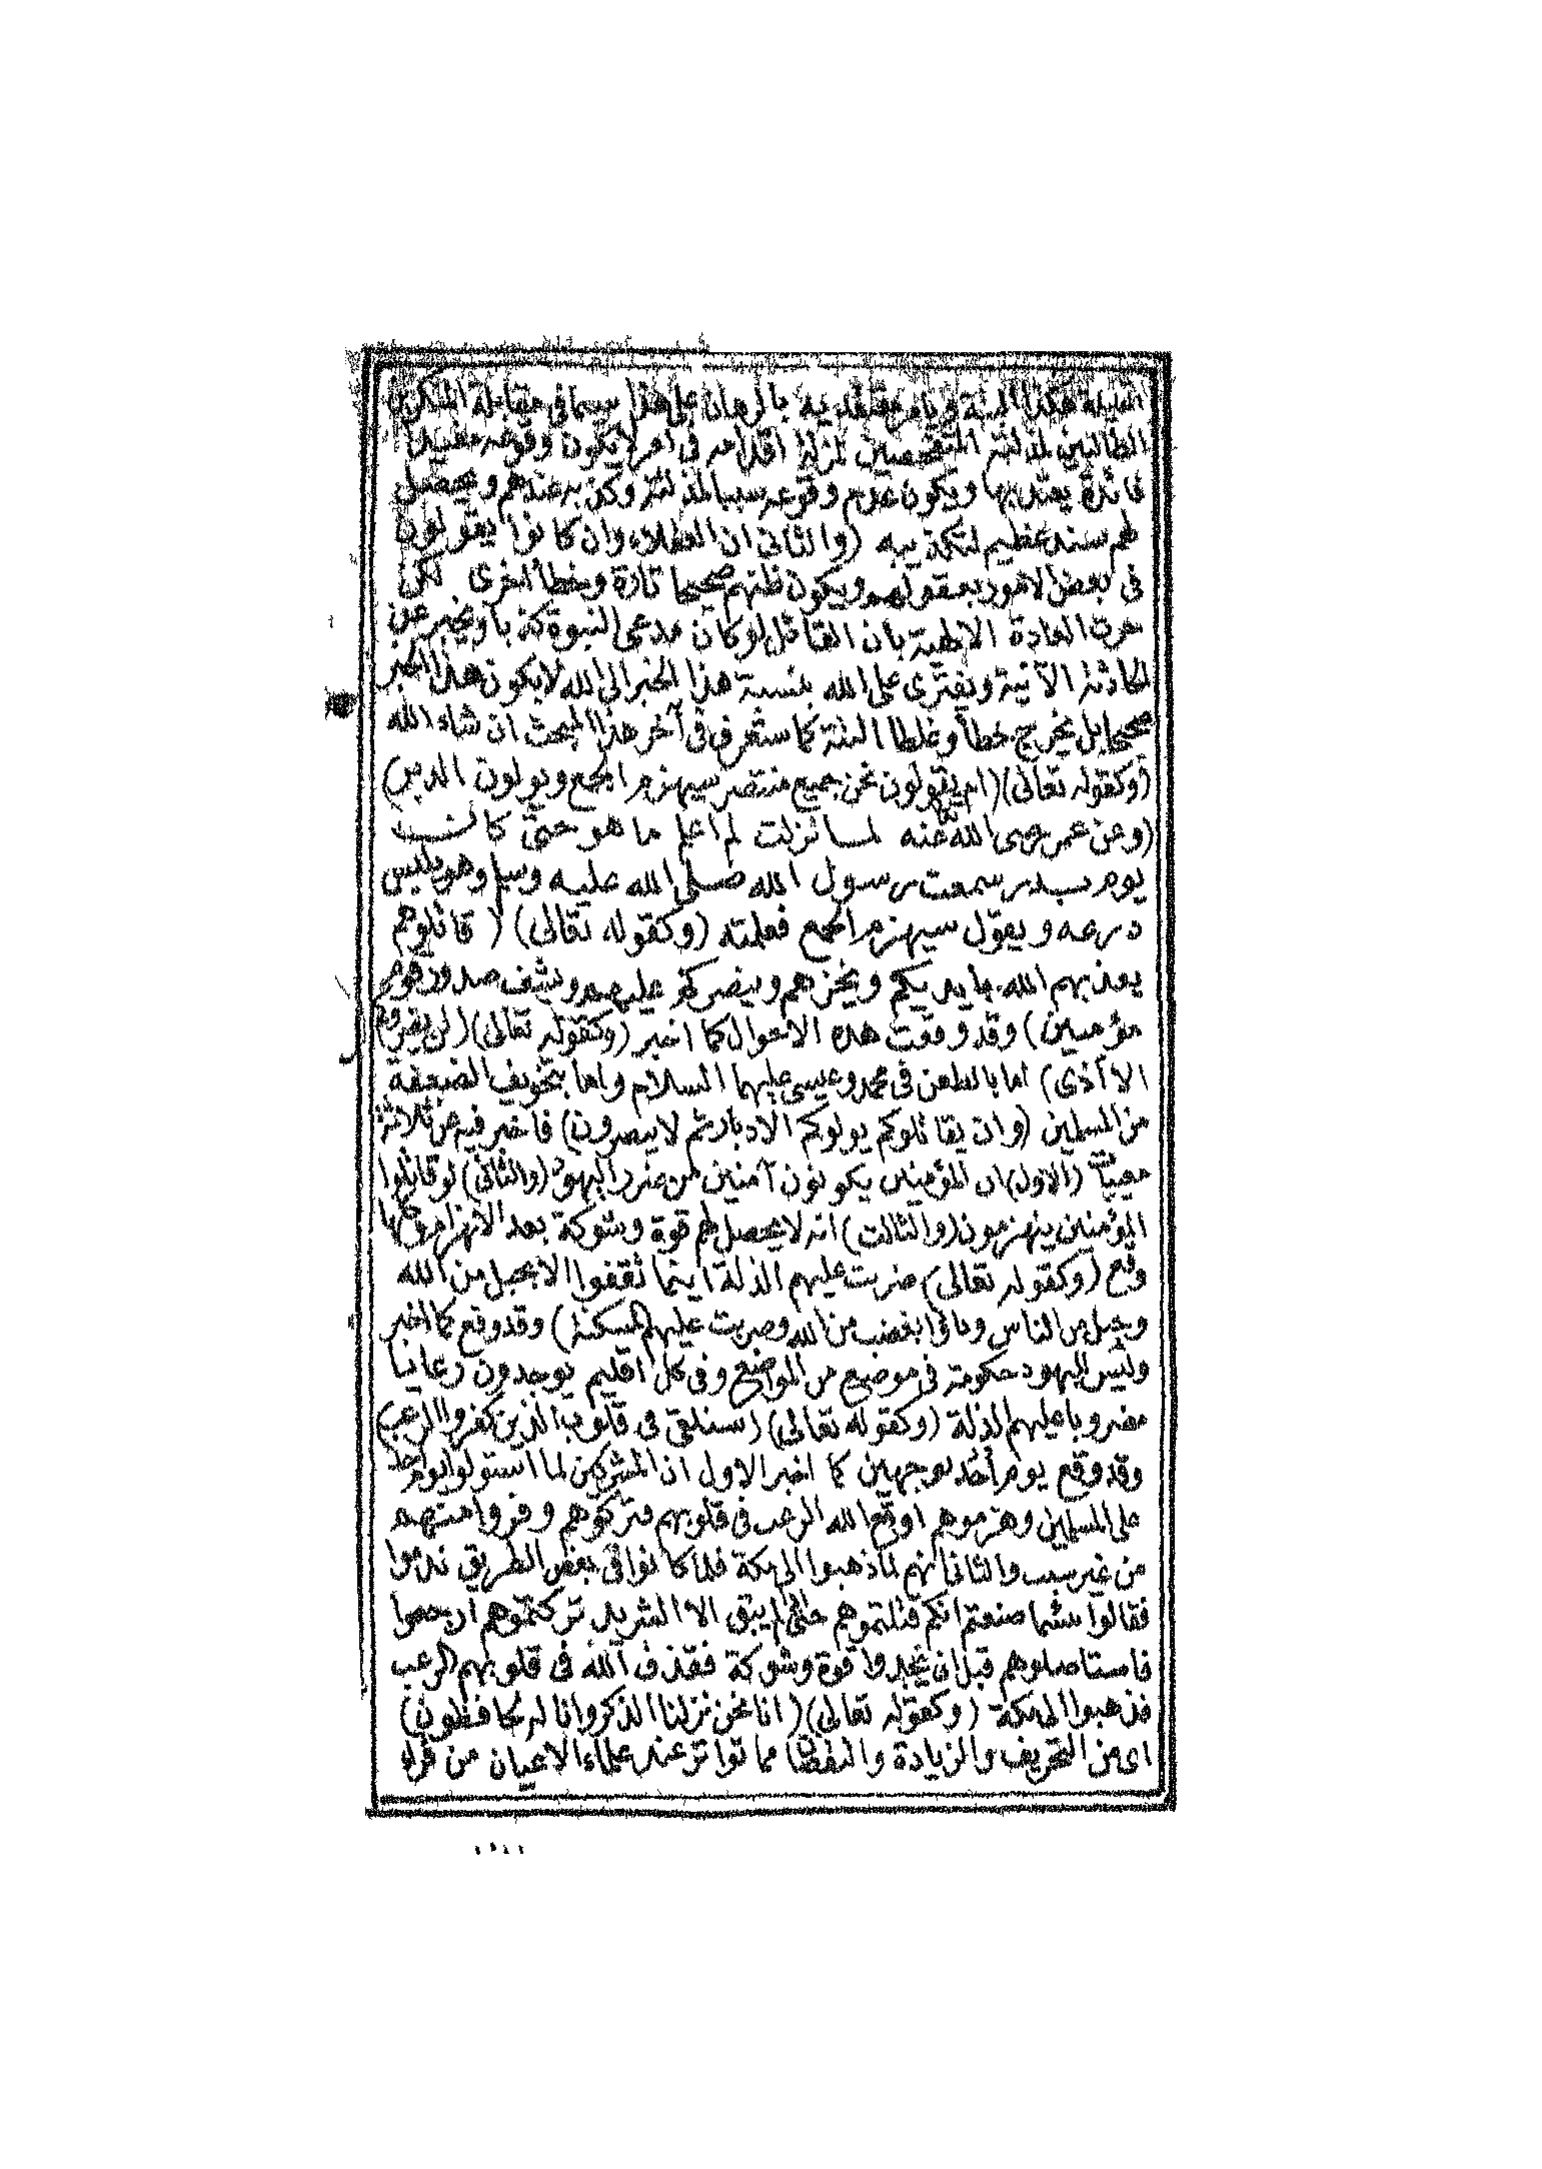 الطالبين لمذلته المتفحصين لمزلة اقدامه فى امر لا يكون وقوعه مفيدا
فائدة يعتد بها ويكون عدم وقوعه سببا لمذلته وكذبه عندهم ويحصل
لهم سند عظيم لتكذيبه (والثانى ان العقلاء وان كانوا يقولون
فى بعض الامور بعقولهم ويكون ظنهم صحيحا تارة وخطأ اخرى لكن
جرت العادة الالهية بان القائل لو كان مدعى النبوة كذبا ويخبر عن
الحادثة الآتية ويفترى على الله بنسبة هذا الخبر الى الله لا يكون هذا الخبر
صحيحا بل يخرج خطأ وغلطا البتة كما ستعرف فى آخر هذا المبحث ان شاء الله
(وكقوله تعالى) (ام يقولون نحن جميع منتصر سيهزم الجمع ويولون الدبر)
(وعن عمر رضى الله عنه لما نزلت لم اعلم ما هو حتى كانت
يوم بدر سمعت رسول الله صلى الله عليه وسلم وهو يلبس
درعه ويقول سيهزم الجمع فعلمته (وكقوله تعالى) ( قاتلوهم
يعذبهم الله بايديكم ويخزهم وينصركم عليهم ويشف صدور قوم
مؤمنين) وقد وقعت هذه الاحوال كما اخبر (وكقوله تعالى) (لن يضروكم
الا أذى) اما بالطعن فى محمد وعيسى عليهما السلام واما بتخويف الضعفة
من المسلمين (وان يقاتلوكم يولوكم الادبار ثم لا ينصرون) فاخبر فيه عن ثلاثة
مغيبات (الاول) ان المؤمنين يكونون آمنين من ضرر اليهود (والثانى) لو قاتلوا
المؤمنين ينهزمون (والثالث) انه لا يحصل لهم قوة وشوكة بعد الانهزام وكلها
وقع (وكقوله تعالى) ضربت عليهم الذلة اينما ثقفوا الا بحبل من الله
وحبل من الناس وباؤا بغضب من الله وضربت عليهم المسكنة) وقد وقع كما اخبر
وليس لليهود حكومة فى موضع من المواضع وفى كل اقليم يوجدون رعايا
مضروبا عليهم الذلة (وكقوله تعالى) (سنلقى فى قلوب الذين كفروا الرعب)
وقد وقع يوم أحد بوجهين كما اخبر الاول ان المشركين لما استولوا يوم احد
على المسلمين وهزموهم اوقع الله الرعب فى قلوبهم فتركوهم وفروا منهم
من غير سبب والثانى انهم لما ذهبوا الى مكة فلما كانوا فى بعض الطريق ندموا
فقالوا بئسما صنعتم انكم قتلتموهم حتى لم يبق الا الشريد تركتموهم ارجعوا
فاستاصلوهم قبل ان يجدوا قوة وشوكة فقذف الله فى قلوبهم الرعب
فذهبوا الى مكة (وكقوله تعالى) ( انا نحن نزلنا الذكر وانا له لحافظون)
اى من التحريف والزيادة والنقصان مما تواتر عند علماء الاعيان من قراء